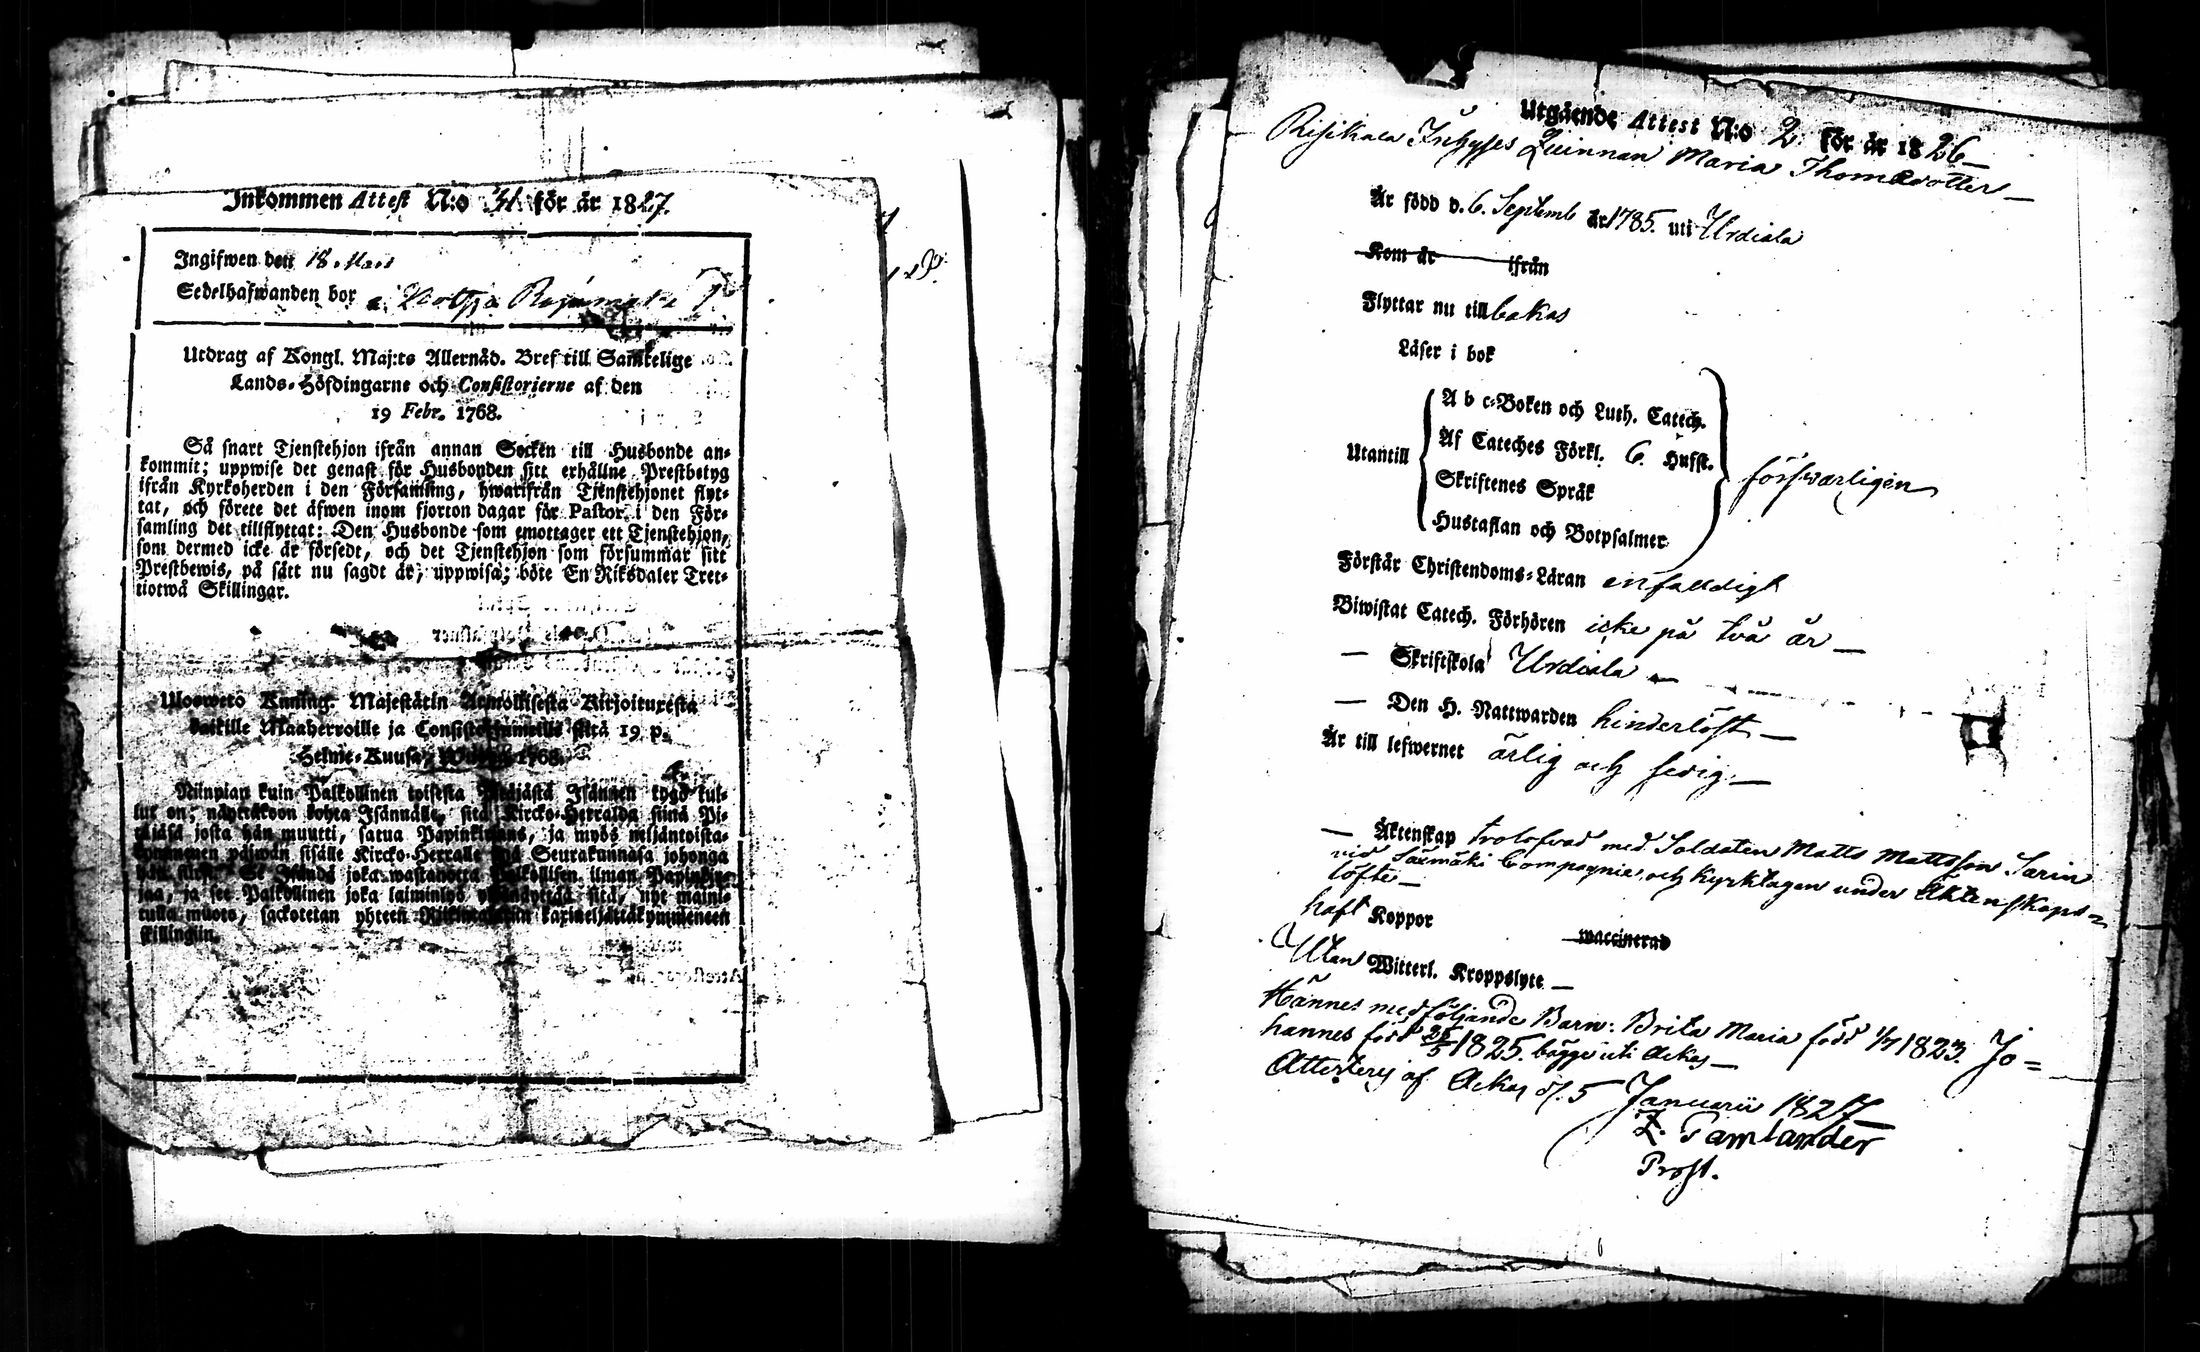 Inkommen Attest N:o 31 för år 1827.
Ingifwen den 18. Mars
Sedelhafwanden bor
Utdrag af Kongl. Maj:ts Allernåd. Bref till Samtelige
Lands-Höfdingarne och Consistorierne af den
19 Febr. 1768.
Så snart Tjenstehjon ifrån annan Socken till Husbonde an-
kommit; uppwise det genast för Husbonden sitt erhållne Prestbetyg
ifrån Kyrkoherden i den Församling, hwarifrån Tjenstehjonet flyt-
tat, och förete det äfwen inom fjorton dagar för Pastor i den För-
samling det tillflyttat: Den Husbonde som emottager ett Tjenstehjon,
som dermed icke är försedt, och det Tjenstehjon som försummar sitt
Prestbewis, på sätt nu sagdt är, uppwisa; böte En Riksdaler Tret-
tiotwå Skillingar.
Ulosweto Kuning. Majestätin Armollisesta Kirjoituxesta
kaikille Maaherroille ja Consistoriumeille siitä 19 p.
Helme-Kuusa 1768.
Niinpian kuin Palkollinen toisesta Pitäjästä Isännen tygö tul-
lut on; näyttäköön kohta Isännälle, sitä Kircko-Herralda siinä Pi-
täjäsä josta hän muutti, saatua Papinkirjans, ja myös neljäntoista-
kymmenen päiwän sisälle Kircko-Herralle siinä Seurakunnasa johonga
hän siirsi: Se Isändä joka wastanotta Palkollisen ilman Papinkir-
jaa, ja see Palkollinen joka laiminlyö ylösnäyttää sitä, nyt maini-
tulla muoto, sackotetan yhteen Riikintaleriin kaxineljättäkymmeneen
skillingiin.
Utgående Attest N:o 2. för år 1826
Risikala Inhyses Quinnan Maria Thomsdotter
Är född d. 6. Septemb år 1785. uti Urdiala
Kom år ifrån
Flyttar nu till bakas
Läser i bok
Utantill
A b c-Boken och Luth. Catech.
Af Cateches Förkl. 6. Hufst.
Skriftenes Språk
Hustaflan och Botpsalmer
försvarligen
Förstår Christendoms-Läran enfalldigt
Biwistat Catech. Förhören icke på två år
— Skriftskola Urdiala
— Den H. Nattwarden hinderlöst
Är till lefwernet ärlig och sedig
— Äktenskap trolofvad med Soldaten Matts Mattsson Sarin
vid Säxmäki Compagnie, och Kyrktagen under Äktenskaps=
löfte
haft Koppor waccinerad
Utan Witterl. Kroppslyte
Hännes medföljande Barn: Brita Maria född 1/7 1823. Jo=
hannes född 25/5 1825. bägge uti Ackas
Attesterej af Ackas d. 5 Januarii 1827
Z. Tamlander
Prost.